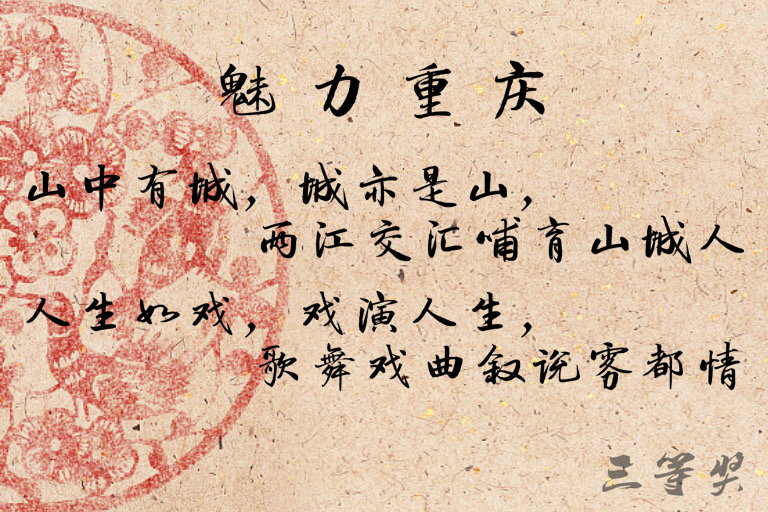 魅力重庆
山中有城，城亦是山，
两江交汇哺育山城人
人生如戏，戏演人生，
歌舞戏曲叙说雾都情
三等奖